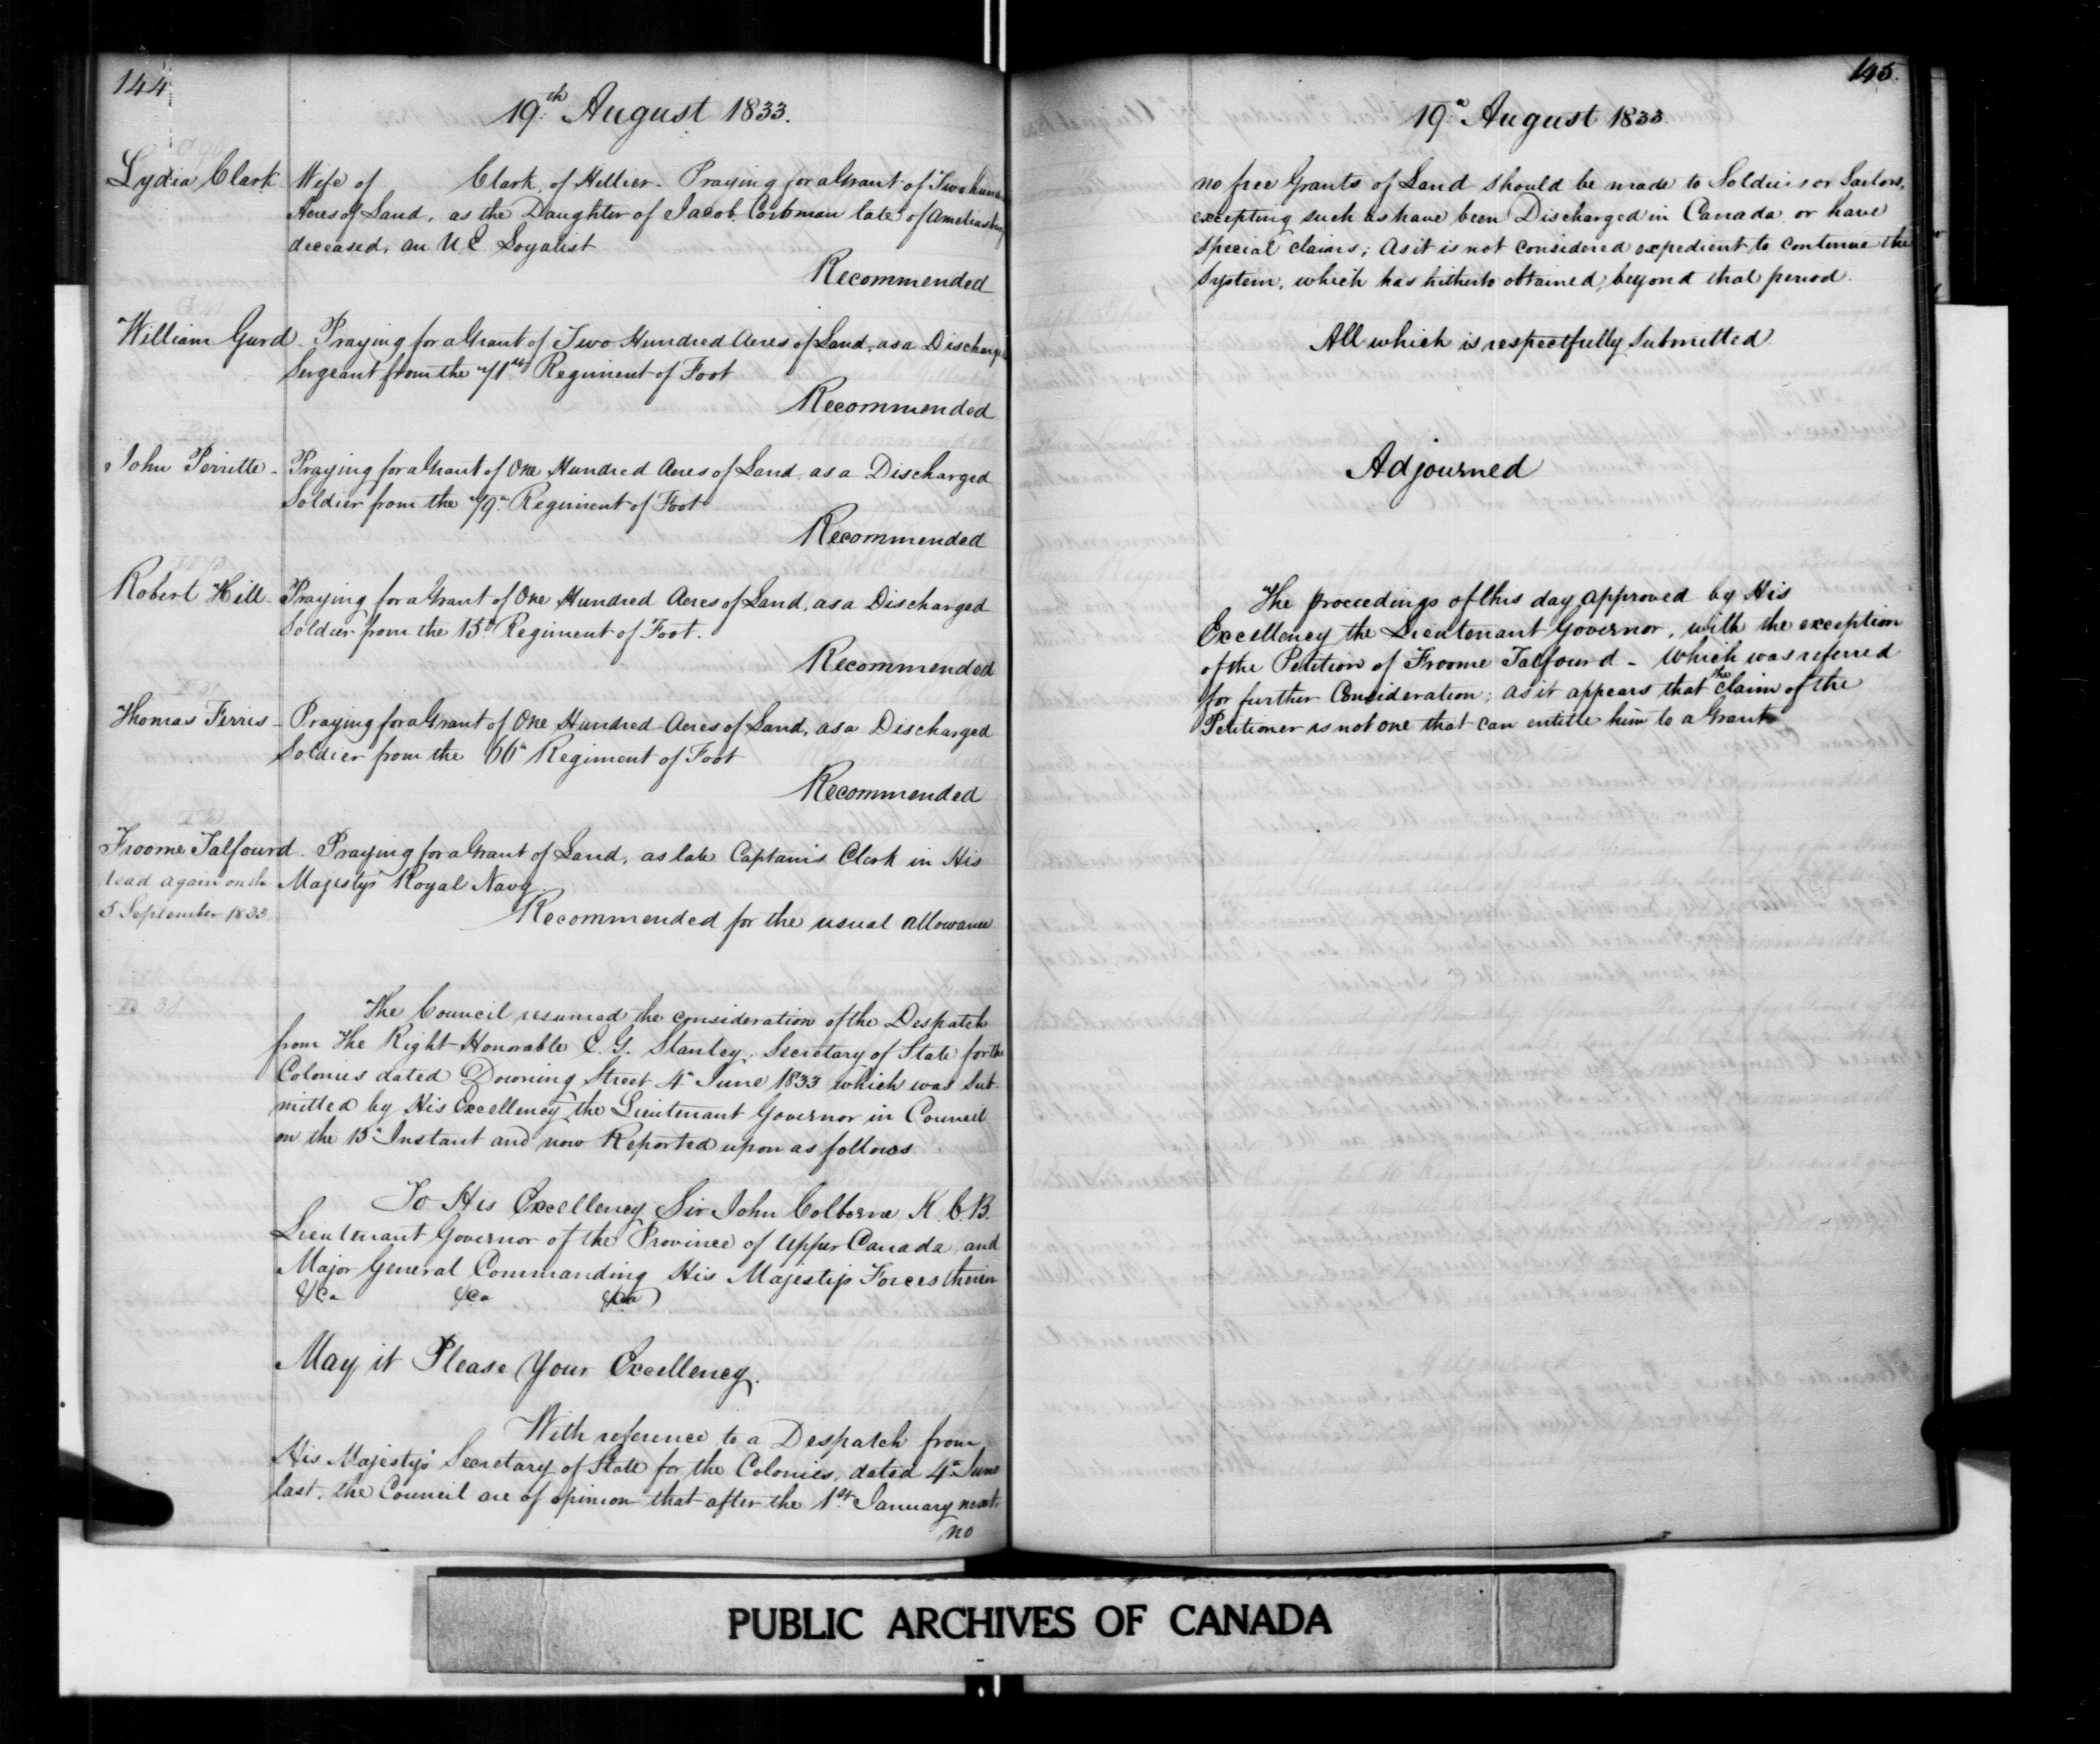 144
19th August 1833.
Lydia Clark. Wife of Clark, of Hillier. Praying for a Grant of Two
Acres of Land, as the Daughter of Jacob Corbman late of
deceased, an U.E. Loyalist
Recommended
William Gurd. Praying for a Grant of Two Hundred Acres of Land, as a
Sergeant from the 71st Regiment of Foot
Recommended
John Perritte - Praying for a Grant of One Hundred Acres of Land, as a Discharged
Soldier from the 79th Regiment of Foot
Recommended
Robert Hill - Praying for a Grant of One Hundred Acres of Land, as a Discharged
Soldier from the 15th Regiment of Foot.
Recommended
Thomas Ferris - Praying for a Grant of One Hundred Acres of Land, as a Discharged
Soldier from the 66th Regiment of Foot
Recommended
Froome Talfourd. Praying for a Grant of Land, as late Captain's Clerk in His
read again on the Majesty's Royal Navy.
5 September 1833.
Recommended for the usual allowance
The Council resumed the consideration of the Despatch
from The Right Honorable E. G. Stanley, Secretary of State for the
Colonies dated Downing Street 4th June 1833 which was sub-
mitted by His Excellency the Lieutenant Governor in Council
on the 15th Instant and now Reported upon as follows
To His Excellency Sir John Colborne K.C.B.
Lieutenant Governor of the Province of Upper Canada and
Major General Commanding His Majesty's Forces therein
&ca &ca &ca
May it Please Your Excellency.
With reference to a Despatch from
His Majesty's Secretary of State for the Colonies, dated 4th June
last, the Council are of opinion that after the 1st January next,
no
145.
19th August 1833
no free Grants of Land should be made to Soldiers or Sailors,
excepting such as have been Discharged in Canada or have
special claims; As it is not considered expedient to continue the
System, which has hitherto obtained, beyond that period.
All which is respectfully Submitted
Adjourned
The proceedings of this day approved by His
Excellency the Lieutenant Governor, with the exception
of the Petition of Froome Talfourd - Which was referred
for further Consideration; as it appears that the claim of the
Petitioner is not one that can entitle him to a Grant
PUBLIC ARCHIVES OF CANADA